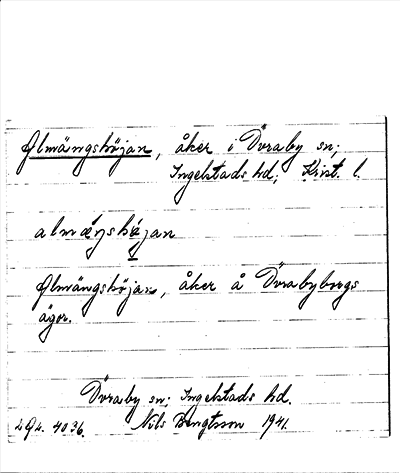 Almängshöjan, åker i Övraby sn;
Ingelstads hd; Krist. l.
almäŋshøjan
Almängshöjan, åker å Övrabyborgs
ägor.
Övraby sn; Ingelstads hd.
4036. Nils Bengtsson 1941.